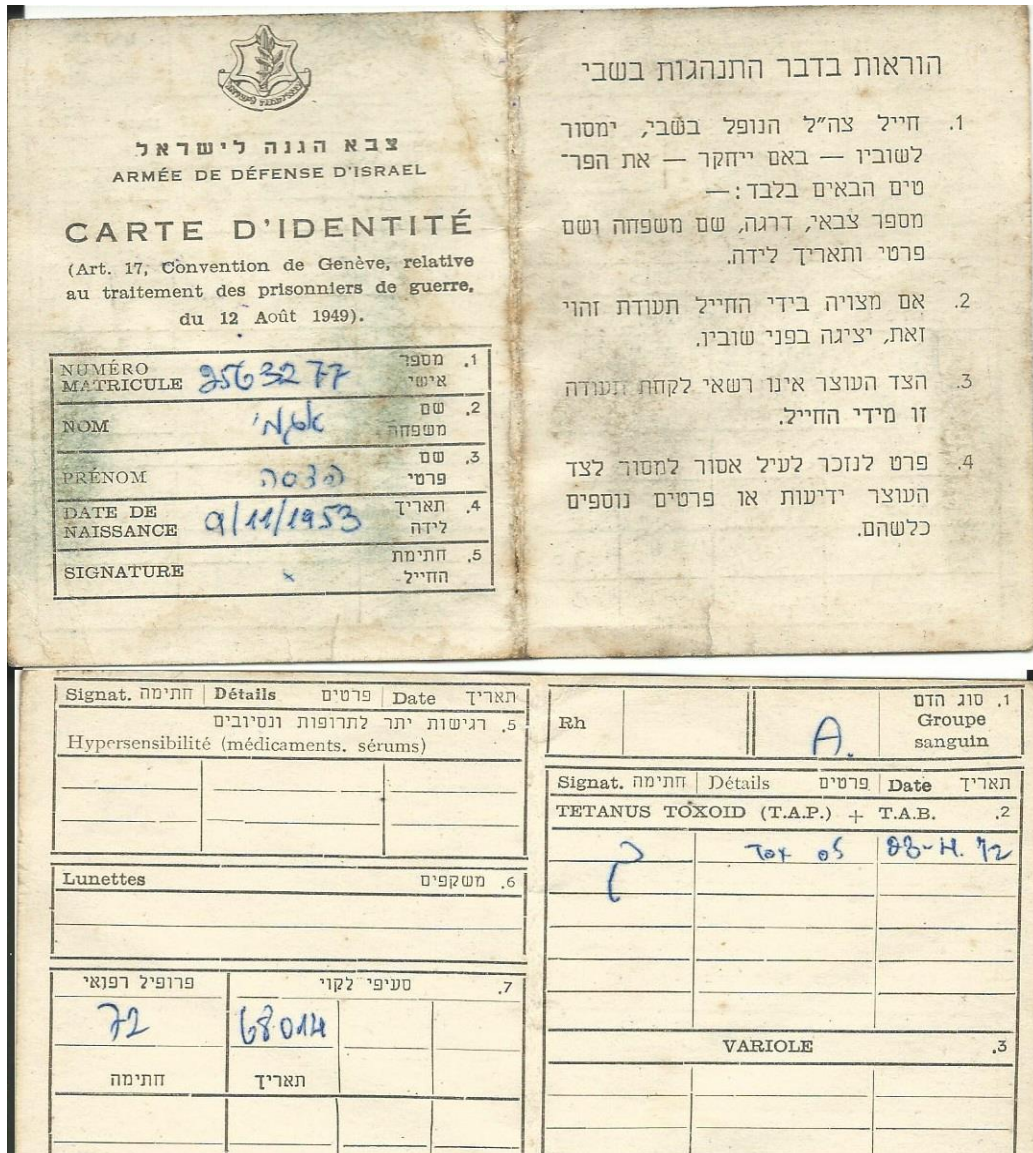 צבא הגנה לישראל
ARMÉE DE DÉFENSE D'ISRAEL
CARTE D'IDENTITÉ
(Art. 17, Convention de Genève, relative
au traitement des prisonniers de guerre,
du 12 Août 1949).
NUMÉRO
MATRICULE
2563277
1. מספר
אישי
NOM
2. שם
משפחה
PRÉNOM
הדסה
3. שם
פרטי
DATE DE
NAISSANCE
9/11/1953
4. תאריך
לידה
SIGNATURE
x
5. חתימת
החייל
הוראות בדבר התנהגות בשבי
1. חייל צה"ל הנופל בשבי, ימסור
לשוביו — באם ייחקר — את הפר־
טים הבאים בלבד: —
מספר צבאי, דרגה, שם משפחה ושם
פרטי ותאריך לידה.
2. אם מצויה בידי החייל תעודת זהוי
זאת, יציגה בפני שוביו.
3. הצד העוצר אינו רשאי לקחת תעודה
זו מידי החייל.
4. פרט לנזכר לעיל אסור למסור לצד
העוצר ידיעות או פרטים נוספים
כלשהם.
Signat. חתימה | Détails פרטים | Date תאריך
5. רגישות יתר לתרופות ונסיובים
Hypersensibilité (médicaments. sérums)
Lunettes 6. משקפים
פרופיל רפואי 7. סעיפי לקוי
72 68014
חתימה תאריך
Rh
A.
1. סוג הדם
Groupe
sanguin
Signat. חתימה | Détails פרטים | Date תאריך
TETANUS TOXOID (T.A.P.) + T.A.B. .2
Tox
VARIOLE .3